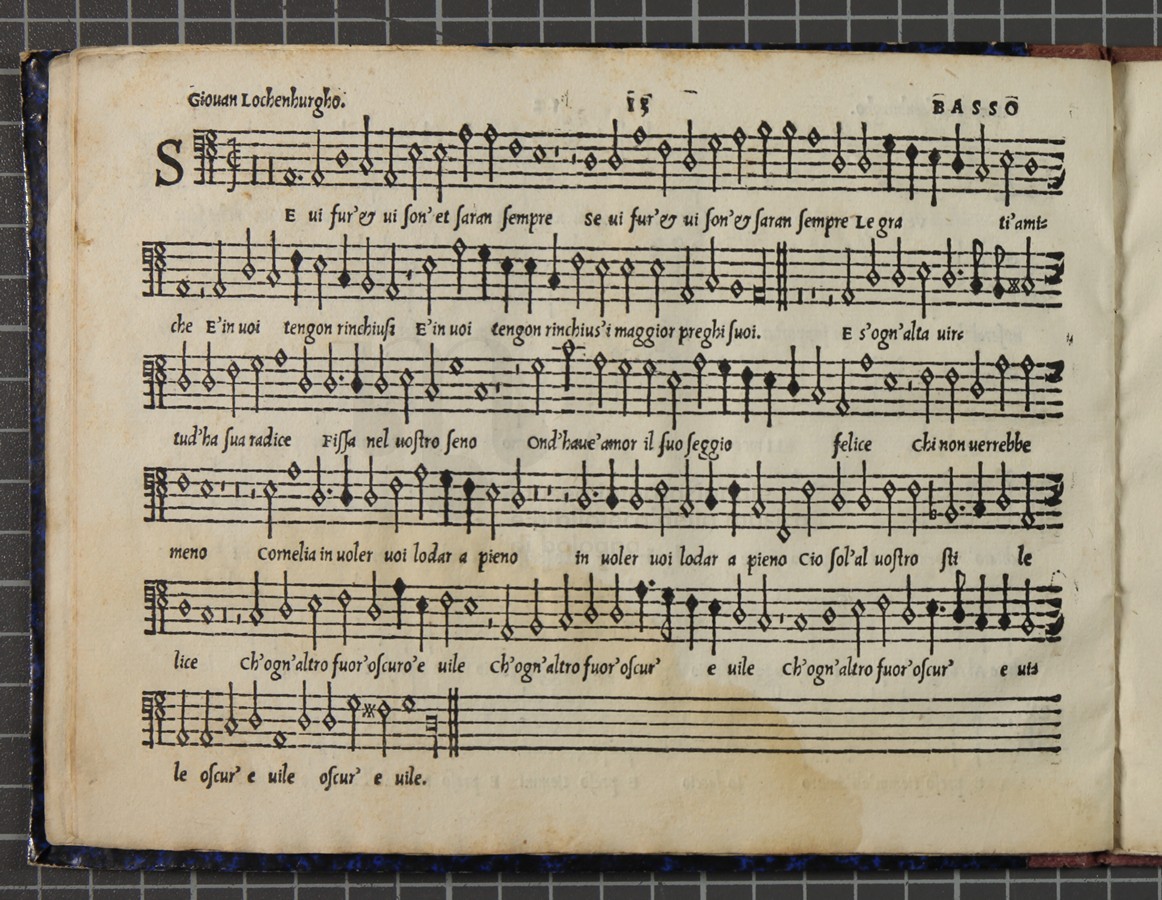 Giouan Lochenhurgho. 15 BASSO
SE ui fur'& ui ſon' et ſaran ſempre Se ui fur'& ui ſon'& ſaran ſempre Le gra ti'ami=
che E'in uoi tengon rinchiuſi E'in uoi tengon rinchius'i maggior preghi ſuoi. E s'ogn'alta uir=
tud'ha ſua radice Fiſſa nel uoſtro ſeno Ond'haue'amor il ſuo ſeggio felice Chi non uerrebbe
meno Cornelia in uoler uoi lodar a pieno in uoler uoi lodar a pieno Cio ſol'al uoſtro ſti le
lice Ch'ogn'altro fuor'oſcuro'e uile Ch'ogn'altro fuor'oſcur' e uile Ch'ogn'altro fuor'oſcur' e ui=
le oſcur' e uile oſcur' e uile.